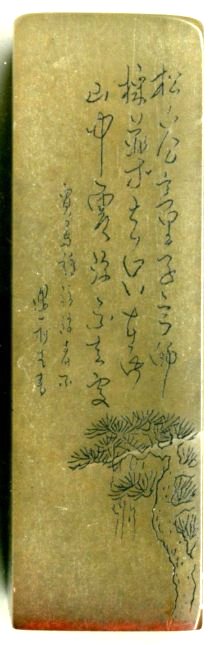 松下問童子言師
採藥去只在此
山中雲深不知處
賈島詩訪隱者不
遇